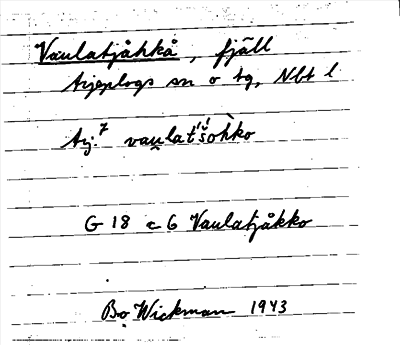 Vaulatjåhkå, fjäll
Arjeplogs sn o tg, Nbt l
Arj.⁷ vau̯lat´š´òhko
G 18 c 6 Vaulatjåkko
Bo Wickman 1943